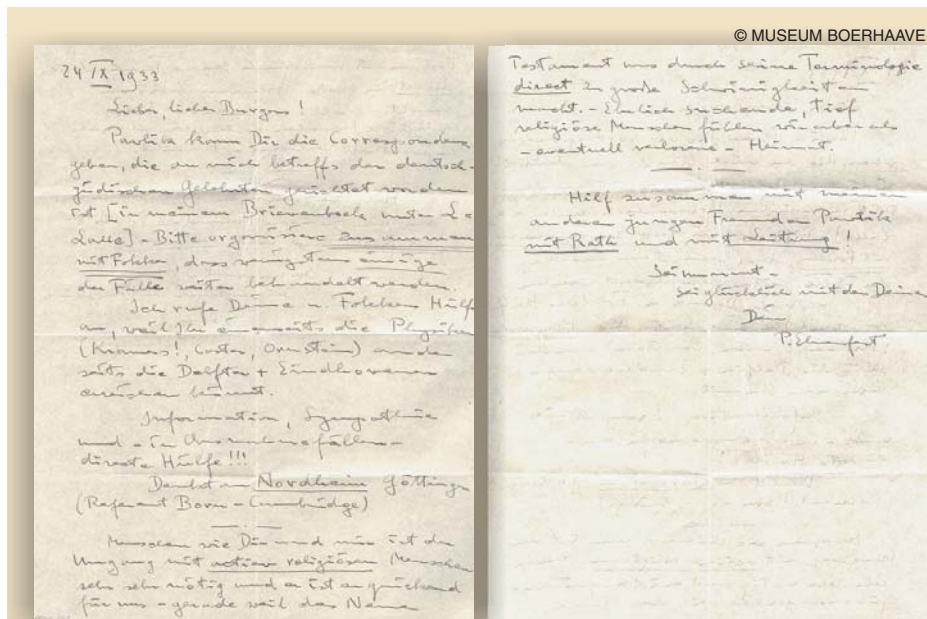 © MUSEUM BOERHAAVE
24 IX 1933
Lieber, lieber Burgers!
Pawlika kann Dir die Correspondenz
geben, die an mich betreffs der deutsch-
jüdischen Gelehrten gerichtet worden
ist [in meinem
Bitte organisiere zusammen
mit Fokker, dass wenigstens einige
der Fälle weiter behandelt werden.
Ich rufe Deine u. Fokkers Hülfe
an, weil Ihr einerseits die Physiker
(Kramers!, Coster, Ornstein) ander
seits die Delfter + Eindhovener
erreichen könnt.
Information, Sympathie
und – in Ausnahmefällen –
directe Hülfe!!!
Denkt an Nordheim Göttingen
(Referent Born – Cambridge)
Menschen wie Dir und mir ist der
Umgang mit activ religiösen Menschen
sehr sehr nötig und er ist erquickend
für uns – gerade weil das Neue
Testament uns durch seine Terminologie
direct zu große Schwierigkeiten
macht. – Ehrlich suchende, tief
religiöse Menschen fühlen wir aber als
– eventuell verlorene – Heimat.
Hilf zusammen mit meinen
anderen jungen Freunden
mit Rath und mit Leitung!
Sei umarmt –
sei glücklich mit den Deinen
Dein
P. Ehrenfest